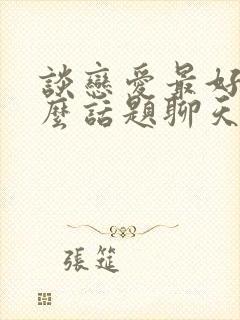 談戀愛最好
麼話題聊天
張筵